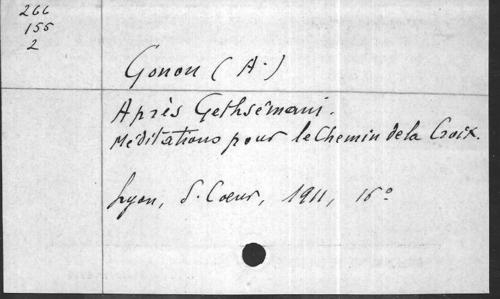 266
155
2
Gonon (A.)
Après Gethsémani.
Méditations pour le Chemin de la Croix.
Lyon, S. Coeur, 1911, 16°